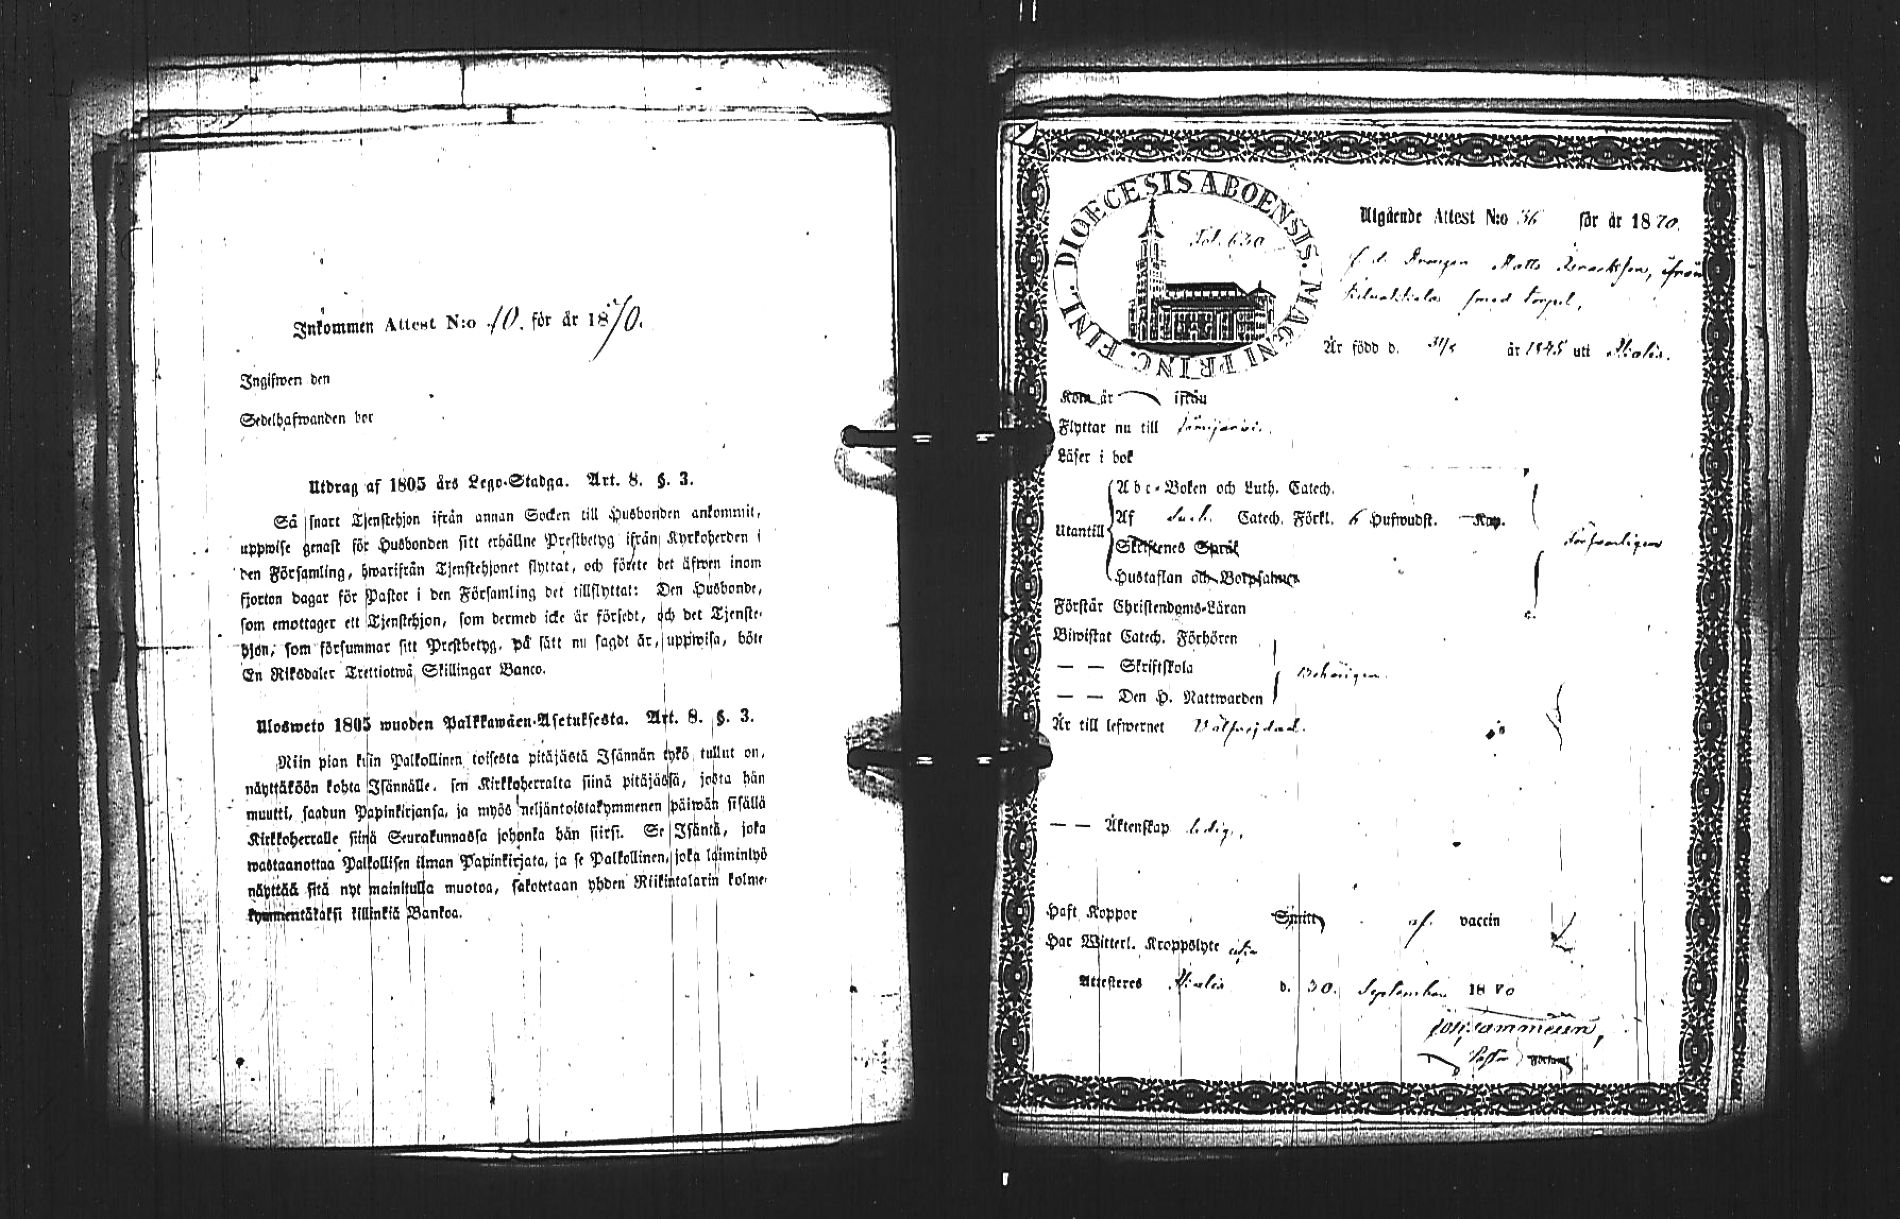 Inkommen Attest N:o 10. för år 1870.
Ingifwen den
Sedelhafwanden bor
Utdrag af 1805 års Lego-Stadga. Art. 8. §. 3.
Så snart Tjenstehjon ifrån annan Socken till Husbonden ankommit,
uppwise genast för Husbonden sitt erhållne Prestbetyg ifrån Kyrkoherden i
den Församling, hwarifrån Tjenstehjonet flyttat, och förete det äfwen inom
fjorton dagar för Pastor i den Församling det tillflyttat: Den Husbonde,
som emottager ett Tjenstehjon, som dermed icke är försedt, och det Tjenste-
hjon, som försummar sitt Prestbetyg, på sätt nu sagdt är, uppwisa, böte
En Riksdaler Trettiotwå Skillingar Banco.
Ulosweto 1805 wuoden Palkkawäen-Asetuksesta. Art. 8. §. 3.
Niin pian kuin Palkollinen toisesta pitäjästä Isännän tykö tullut on,
näyttäköön kohta Isännälle, sen Kirkkoherralta siinä pitäjässä, josta hän
muutti, saadun Papinkirjansa, ja myös neljäntoistakymmenen päiwän sisällä
Kirkkoherralle siinä Seurakunnassa johonka hän siirsi. Se Isäntä, joka
wastaanottaa Palkollisen ilman Papinkirjata, ja se Palkollinen, joka laiminlyö
näyttää sitä nyt mainitulla muotoa, sakotetaan yhden Riikintalarin kolme-
kymmentäkaksi killinkiä Bankoa.
DIOECESIS ABOENSIS. MAGNI PRINC. FINL.
Fol. 630
Utgående Attest N:o 36 för år 1870.
f. d. Drengen Matts Isaaksson, ifrån
torpel,
Är född d. 31/5 år 1845 uti Kiala.
Kom år ifrån
Flyttar nu till Jämijärvi.
Läser i bok
Utantill
Abc-Boken och Luth. Catech.
Af Luth. Catech. Förkl. 6 Hufwudst. Kap.
Skriftenes Språk
Hustaflan och Botpsalmer
Försvarligen
Förstår Christendoms-Läran
Biwistat Catech. Förhören
— — Skriftskola
Behörigen.
— — Den H. Nattwarden
Är till lefwernet Välfrejdad.
— — Äktenskap ledig.
Haft Koppor Smitt af vaccin
Har Witterl. Kroppslyte
Attesteres d. 30. September 1870
Pastor Församl